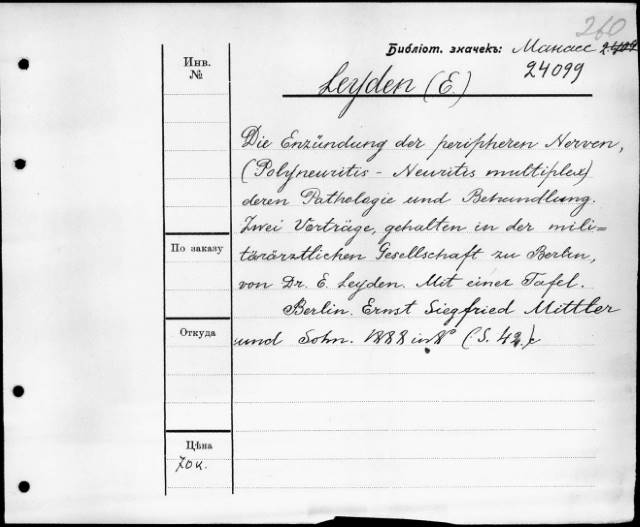 260
Библіот. значекъ: Манасс
24099
Инв.
№
Leyden (E.)
Die Enzündung der peripheren Nerven,
(Polyneuritis - Neuritis multiplex)
deren Pathologie und Behandlung.
Zwei Vorträge, gehalten in der mili=
tärärztlichen Gesellschaft zu Berlin,
von Dr. E. Leyden. Mit einer Tafel.
Berlin. Ernst Siegfried Mittler
und Sohn. 1888 in 8° (S. 42.)
По заказу
Откуда
Цѣна
70 к.